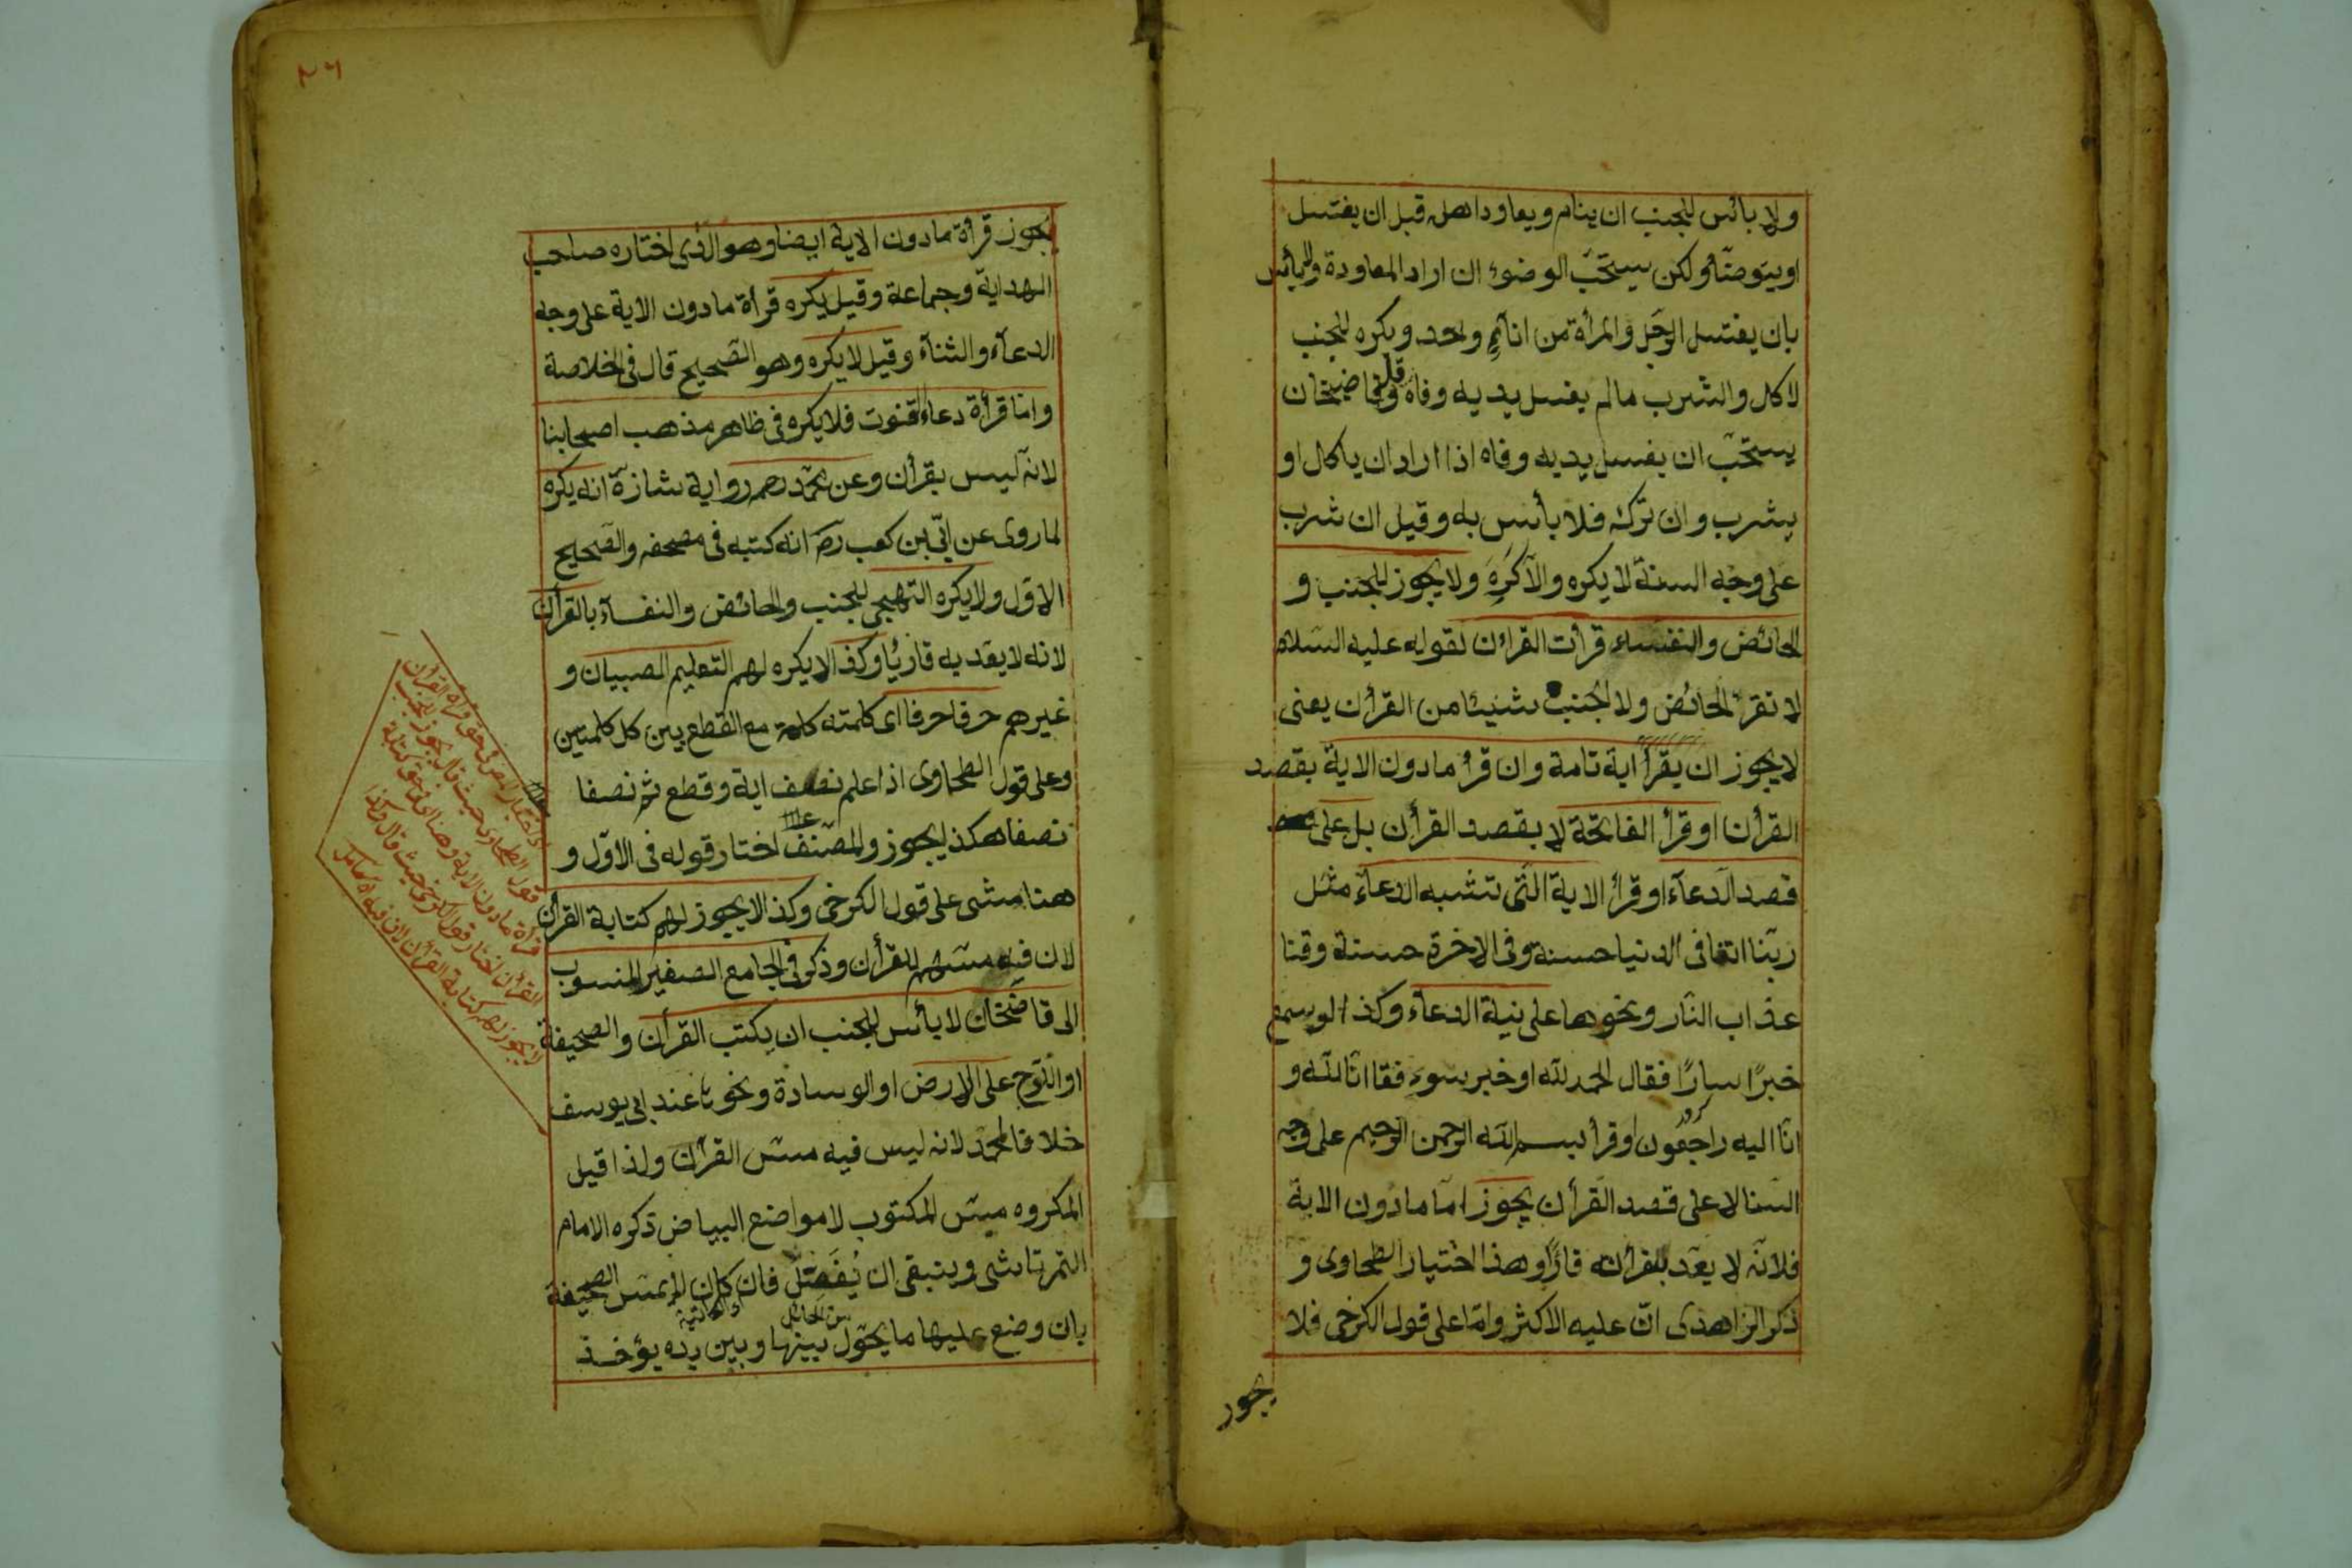 ولا بائس للجنب ان ينام ويعاود اهله قبل ان يغتسل
او يتوضّأ ولكن يستحّب الوضوء ان اراد المعاودة ولا بائس
بان يغتسل الرّجل والمرأة من اناءٍ واحد ويكره للجنب
لاكل والشرب مالم يغسل يديه وفاه وفي قاضيخان
يستحّب ان يغسل يديه وفاه اذا اراد ان ياكل او
يشرب وان تركه فلا بأس به وقيل ان شرب
على وجه السنة لا يكره والّا كُرِهَ ولا يجوز للجنب و
الحائض والنفساء قرأت القرأن لقوله عليه السلام
لا تقرء الحائض ولا الجُنب شيئا من القرأن يعنى
لا يجوز ان يقرأ اية تامة وان قرأ مادون الاية بقصد
القرأن او قرأ الفاتحة لا بقصد القرأن بل على
قصد الدّعآء او قرأ الاية الّتى تشبه الدعآء مثل
ربّنا اتنا فى الدنيا حسنة وفى الاخرة حسنة وقنا
عذاب النّار ونحوها على نية الدعآء وكذا لو سمع
خبرًا سارًا فقال الحمد لله او خبر سوء فقا انّا لله و
انّا اليه راجعون او قرأ بسم الله الرحمن الرحيم على وجه
الثنا لا على قصد القرأن يجوز امّا مادون الاية
فلانّه لا يعّد بقرأته قارًا وهذا اختيار الطحاوى و
ذكر الزاهدى انّ عليه الاكثر وامّا على قول الكرخى فلا
يجوز
٢٦
يجوز قرأة مادون الاية ايضا وهو الّذى اختاره صاحب
الهداية وجماعة وقيل يكره قرأة مادون الاية على وجه
الدعآء والثنآء وقيل لا يكره وهو الصّحيح قال فى الخلاصة
وامّا قرأة دعاء القنوت فلا يكره فى ظاهر مذهب اصحابنا
لانّه ليس بقرأن وعن محّمد رحمه رواية شاذّة انه يكره
لما روى عن ابّى بن كعب رضَ انه كتبه فى مصحفه والصّحيح
الاوّل ولا يكره التهجى للجنب والحائض والنفسآء بالقرأن
لانه لا يعّد به قاريًا وكذا لا يكره لهم التعليم الصبيان و
غيرهم حرفا حرفا اى كلمته كلمة مع القطع بين كل كلمتين
وعلى قول الطحاوى اذا علم نصف اية وقطع ثم نصفا
نصفا هكذا يجوز والمصّنف اختار قوله فى الاوّل و
هنا مشى على قول الكرخى وكذا لا يجوز لهم كتابة القرأن
لان فيه مسّهم للقرأن وذكر فى الجامع الصغير المنسوب
الى قاضخان لا بأس للجنب ان يكتب القرأن والصحيفة
او اللّوح على الارض او الوسادة ونحوها عند ابى يوسف
خلافا لمحّمد لانه ليس فيه مسّ القرأن ولذا قيل
المكروه مسّ المكتوب لا مواضع البياض ذكره الامام
التمرتاشى وينبغى ان يُفَصّل فان كان لا يمسّ الصحيفة
بان وضع عليها ما يحّول بينها وبين يده يؤخذ
من الحائل
قول الطحاوى حيث قال يجوز للجنب
قرأة مادون الاية وهنا اى فى حق كتابة
القرأن اختار قول الكرخى حيث قال وكذا
لا يجوز لهم كتابة القرأن لان فيه